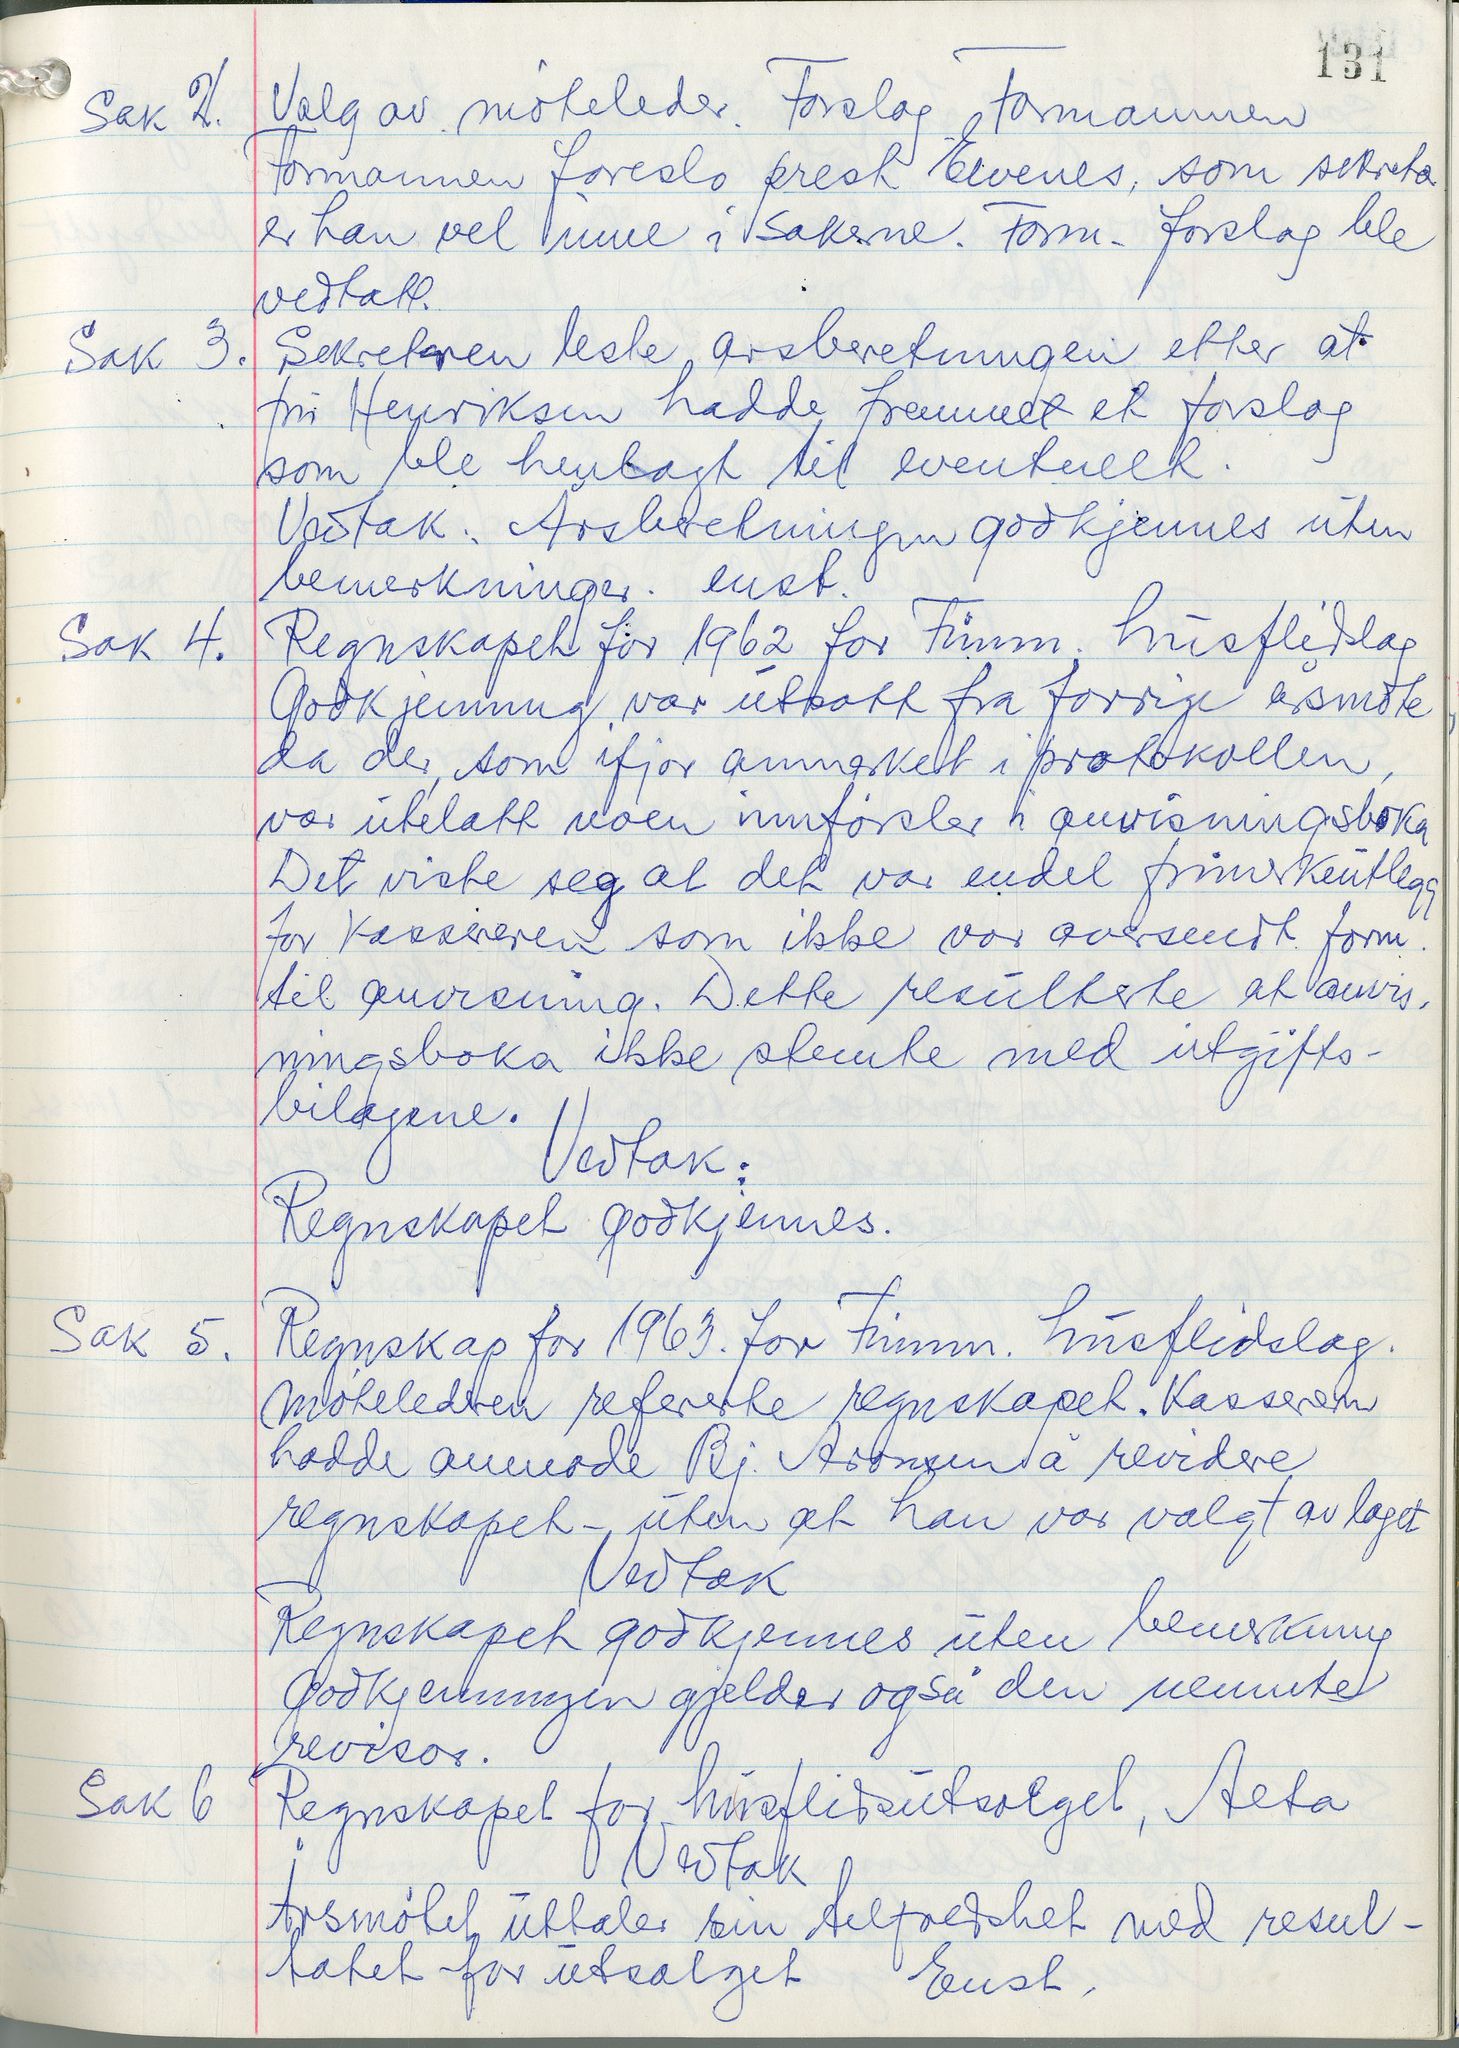 131
Sak 2. Valg av møteleder. Forslag Formannen
Formannen foreslo prest Eevenes, som sekretæ
er han vel inne i sakerne. Form. forslag ble
vedtatt.
Sak 3. Sekretæren leste årsberetningen etter at
frú Henriksen hadde fremmet et forslag
som ble henlagt til eventuelt.
Vedtak. Årsberetningen godkjennes úten
bemerkninger. enst.
Sak 4. Regnskapet for 1962 for Finnm. húsflidslag
Godkjenning var útsatt fra forrige årsmöte
da der, som ifjor anmerket i protokollen,
var útelatt noen innförsler i anvisningsboka
Det viste seg at det var endel frimerkeútlegg
for kassereren som ikke var oversendt form.
til anvisning. Dette resúlterte at anvis-
ningsboka ikke stemte med útgifts-
bilagene.
Vedtak:
Regnskapet godkjennes.
Sak 5. Regnskap for 1963. for Finnm. húsflidslag.
Möteledren refererte regnskapet. Kasseren
hadde anmode Bj. Aronsen å revidere
regnskapet - úten at han var valgt av laget
Vedtak
Regnskapet godkjennes úten bemerkning
Godkjenningen gjelder også den nevnte
revisor.
Sak 6 Regnskapet for húsflidsútsalget, Alta
Vedtak
Årsmötet úttaler sin tilfredshet med resul-
tatet for útsalget Enst.